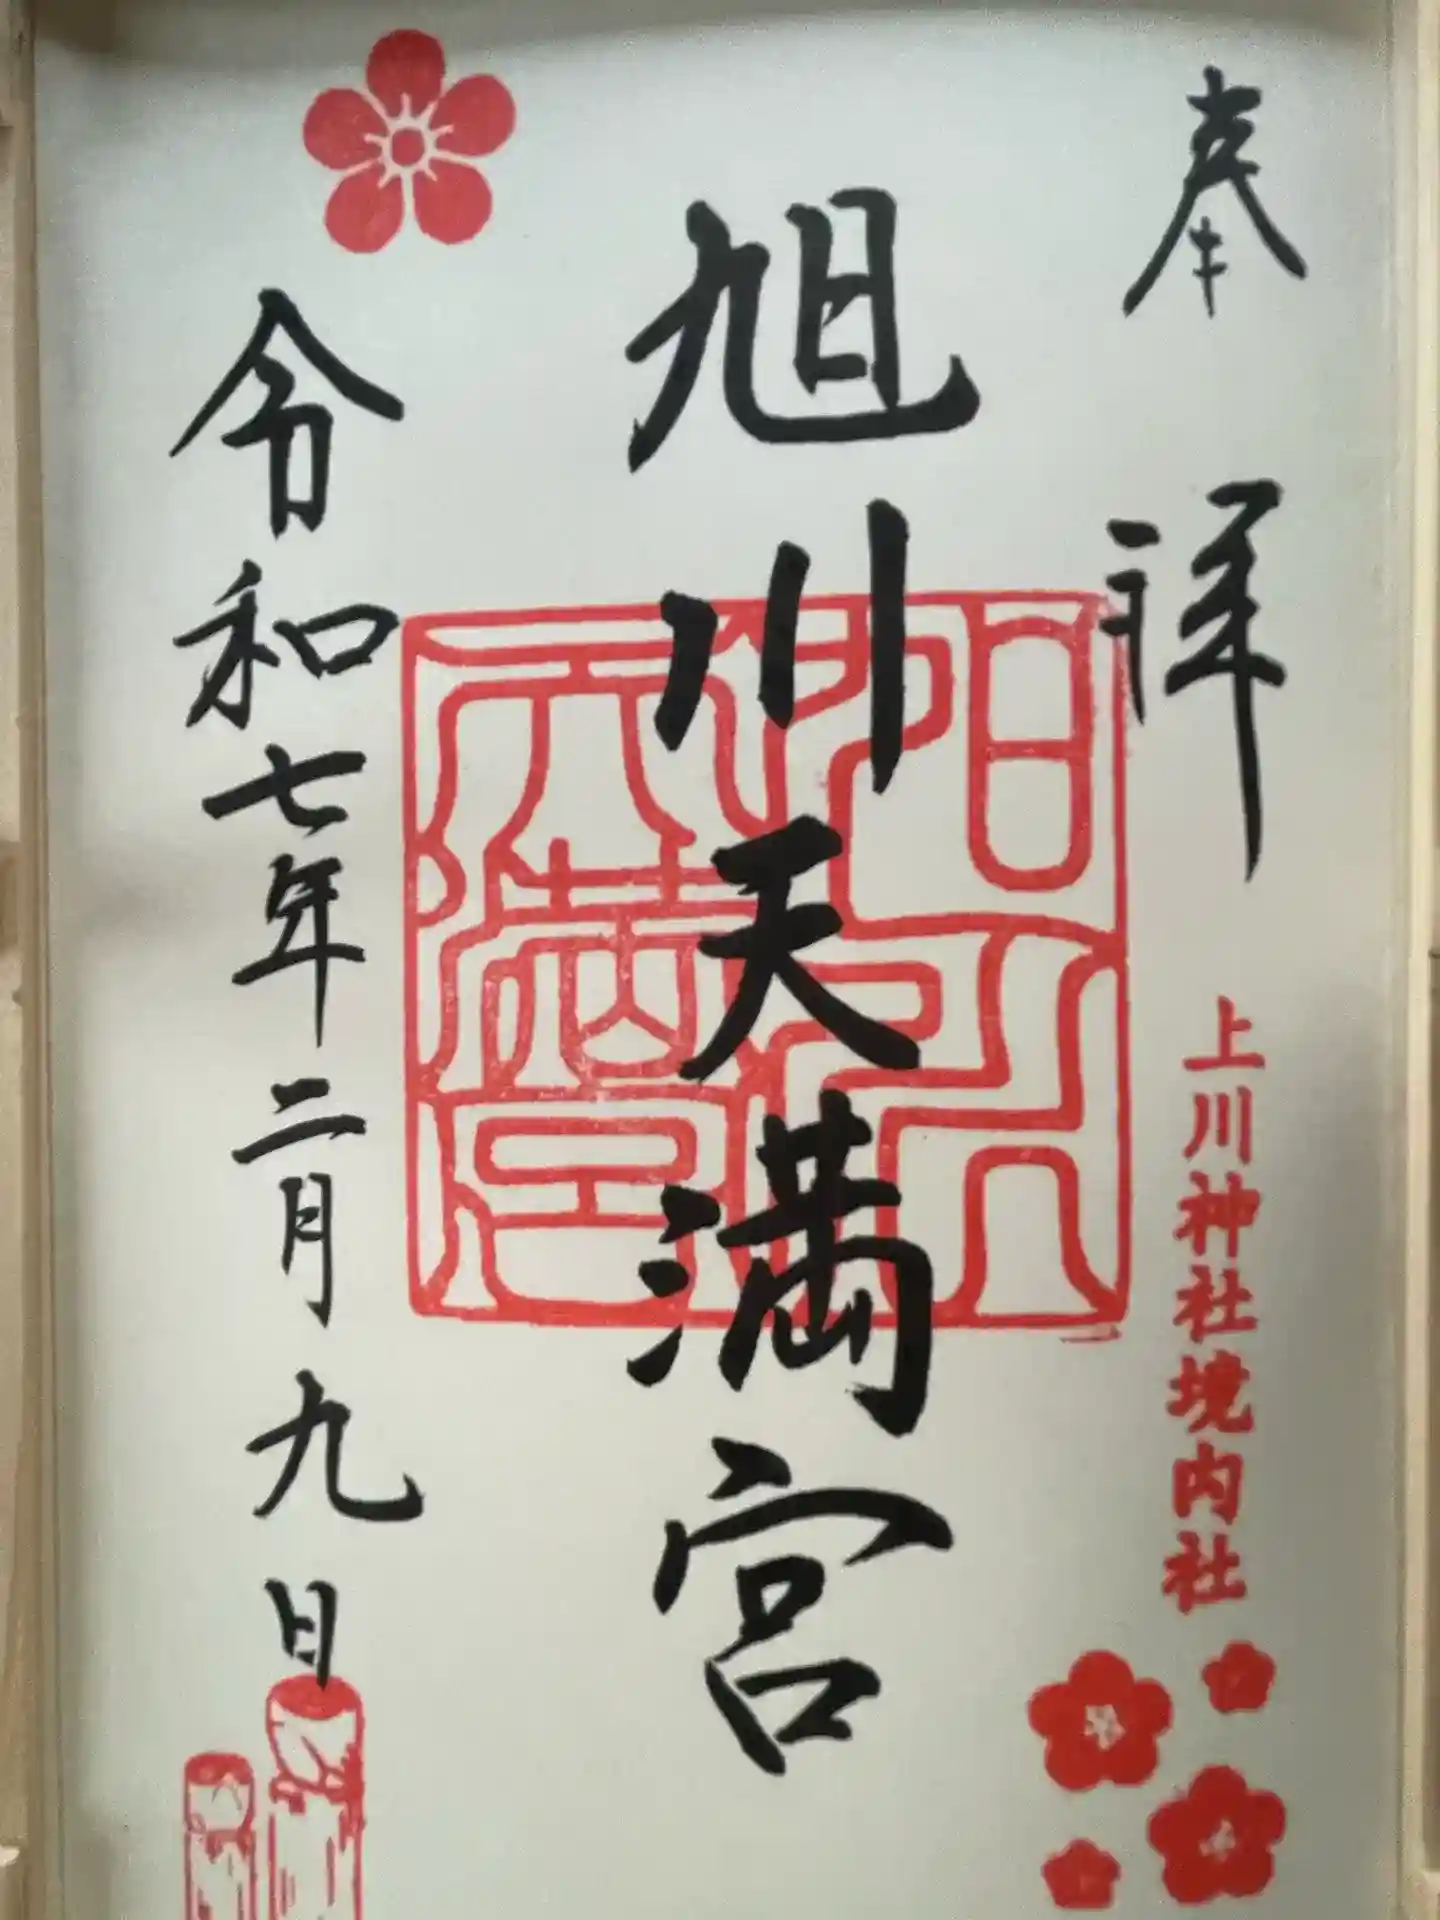 奉拝
上川神社境内社
旭川天満宮
旭川天満宮
令和七年二月九日